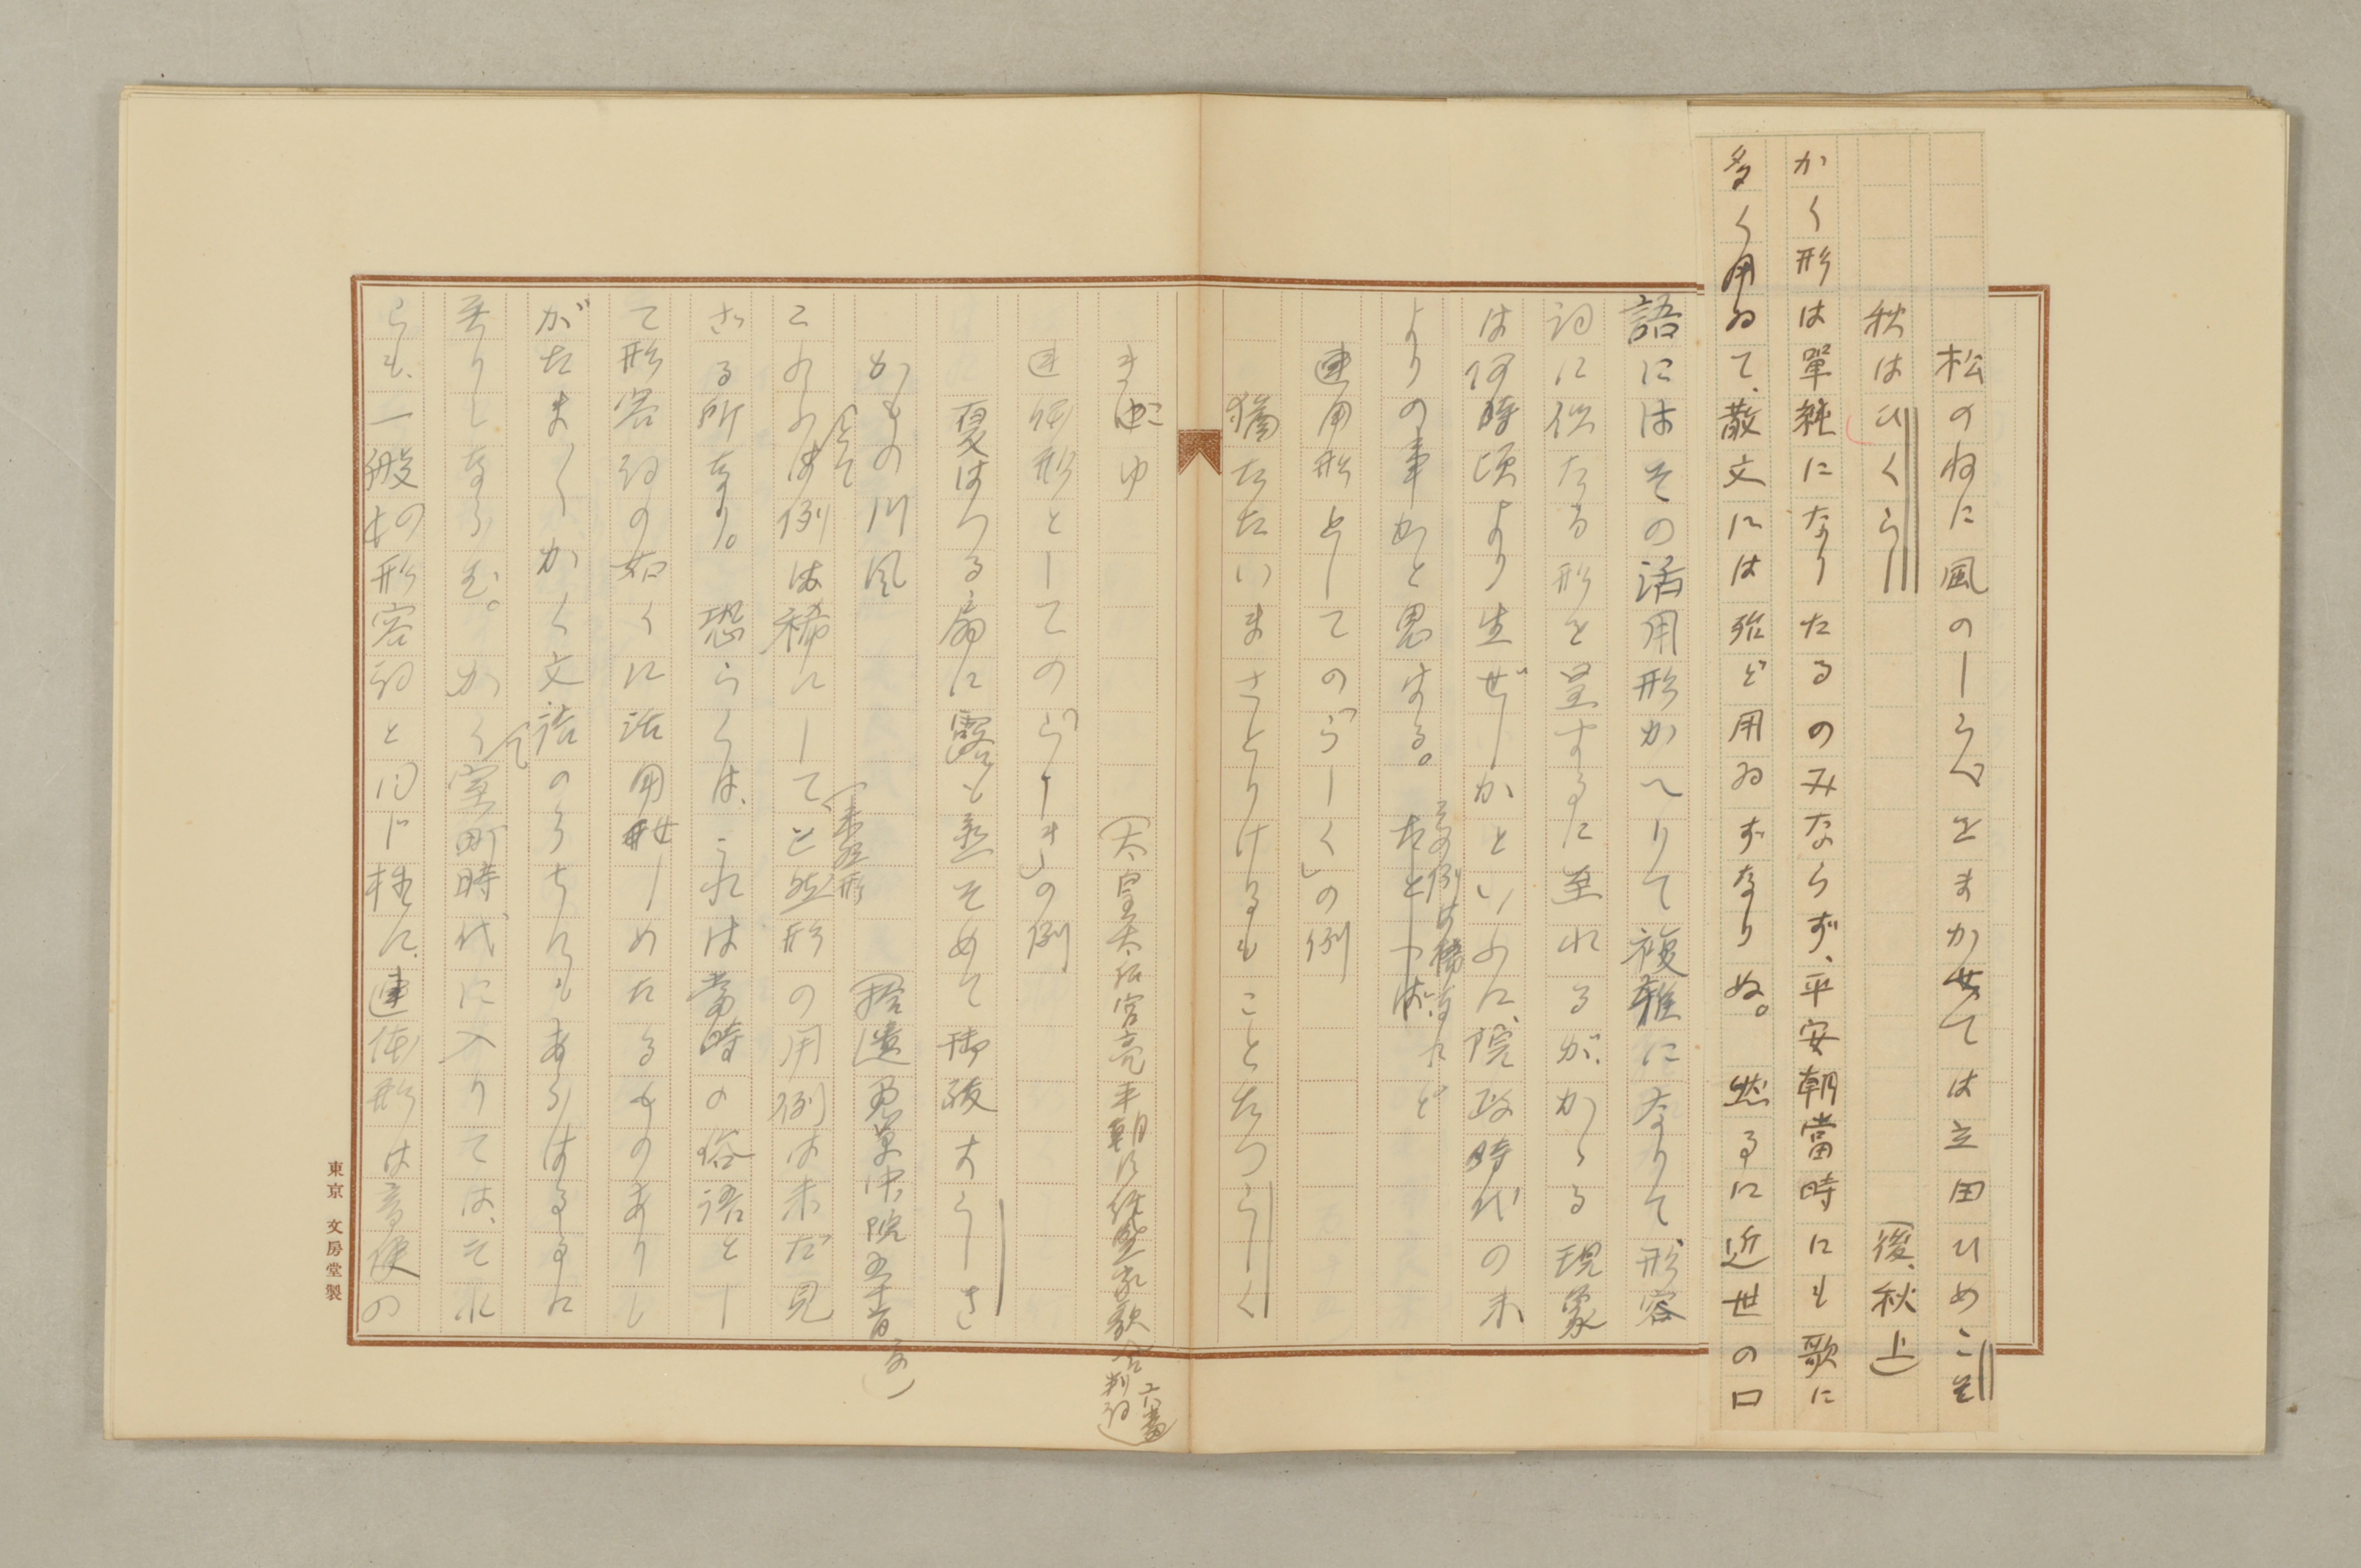 松のねに風のしらべをまかせては立田ひめこそ
秋はひくらし（後、秋上）
かく形は單純になりたるのみならず、平安朝當時にも歌に
多く用ゐて、散文には殆ど用ゐずなりぬ。然るに近世の口
語にはその活用形かへりて複雜になりて、形容
詞に似たる形を呈するに至れるが、かゝる現象
は何時頃より生ぜしかといふに、院政時代の末
よりの事かと思はる。
その例は稀なれど
連用形としての「らしく」の例
猶たたいまさとりけるもことたつらしく
きこゆ
（太皇太后宮亮平朝臣経盛家歌合判詞
連体形としての「らしき」の例
夏はつる扇に露も置そめて御祓すゝしき
かもの川風
（拾遺愚草中、院五十首、夏）
これらは例は稀にして已然形の用例は未だ見
とて
（未然形
ざる所なり。恐らくは、これは當時の俗語とし
て形容詞の如くに活用せしめたるものありし
がたま／＼かく文語のうちにもあらはるるに
至りしならむ。かくて室町時代に入りては、それ
らも、一般の形容詞と同じ様に、連体形は音便の
東京 文房堂製